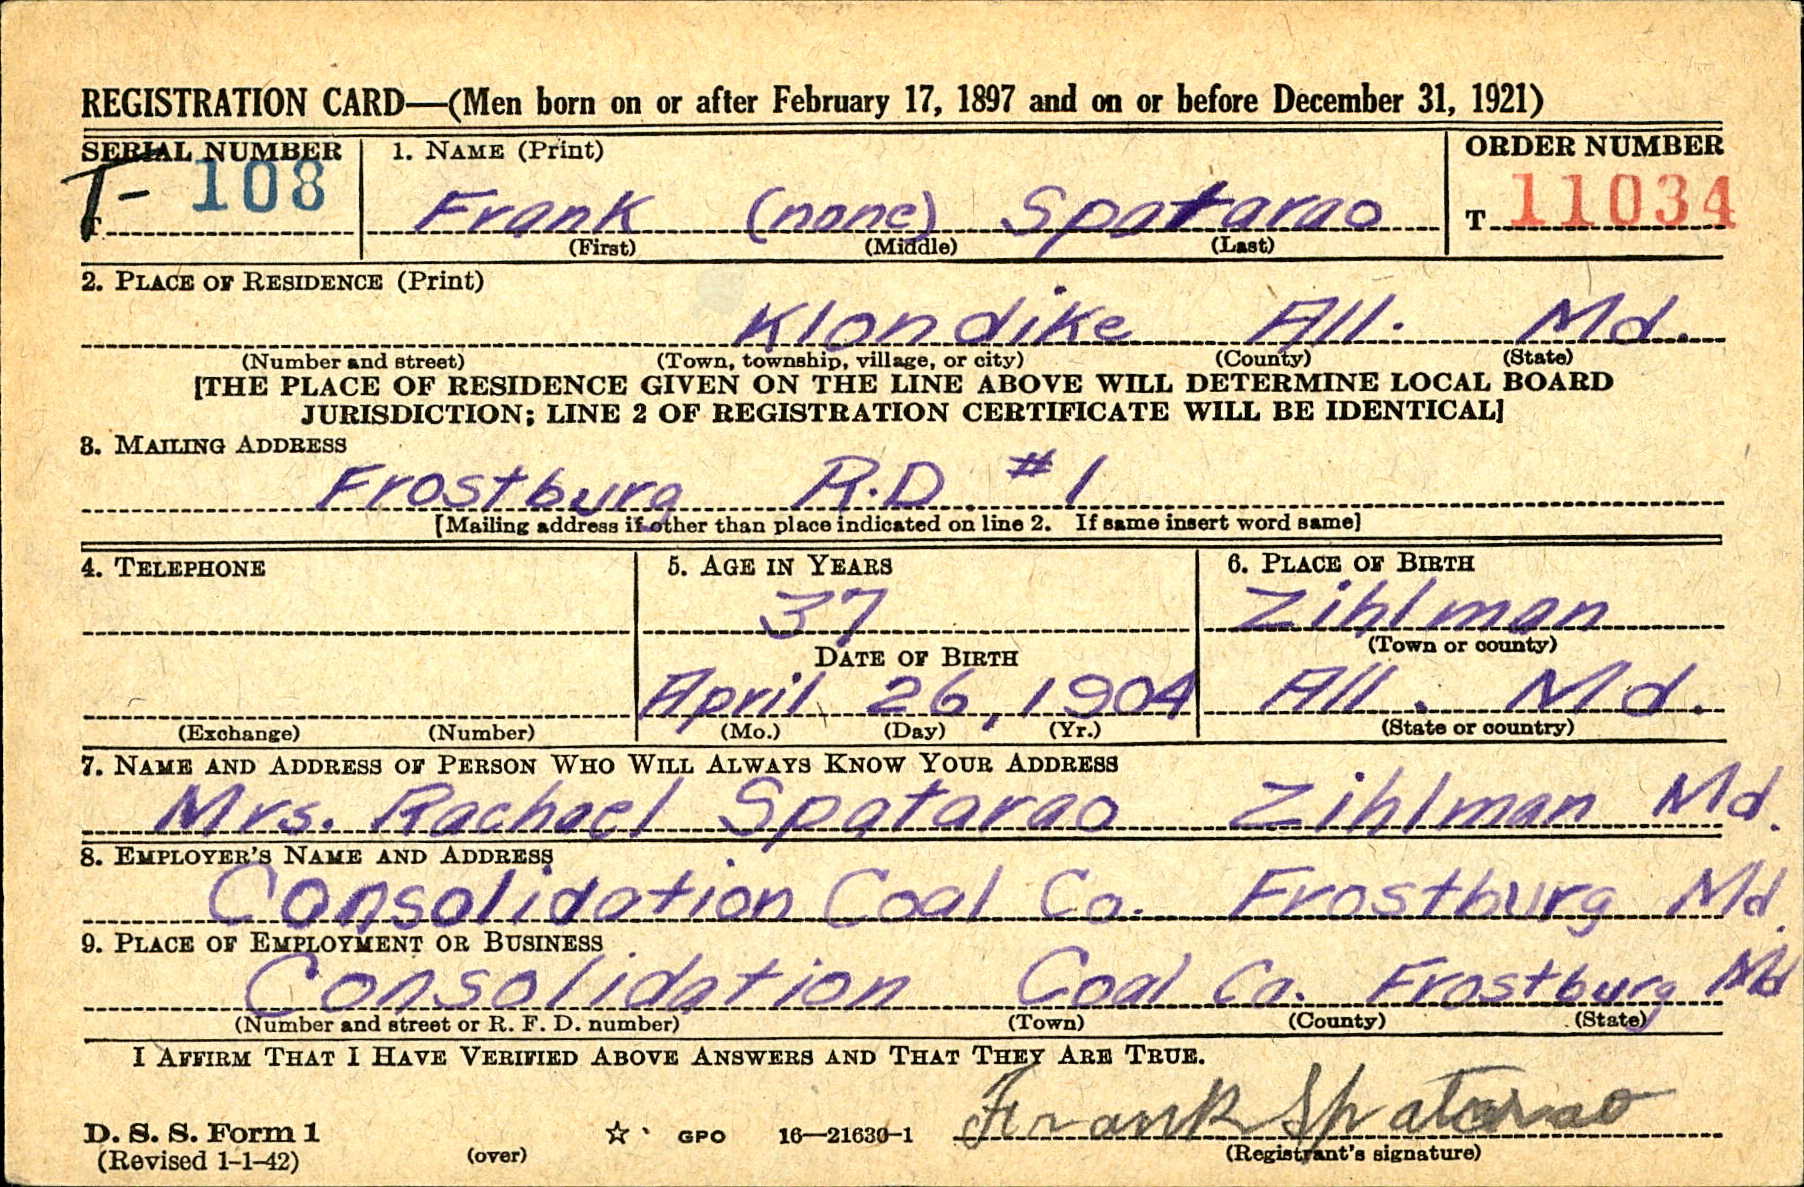 REGISTRATION CARD—(Men born on or after February 17, 1897 and on or before December 31, 1921)
SERIAL NUMBER 1. NAME (Print) ORDER NUMBER
T- 108 Frank (none) Spatarao T 11034
T (First) (Middle) (Last)
2. PLACE OF RESIDENCE (Print)
Klondike All. Md.
(Number and street) (Town, township, village, or city) (County) (State)
[THE PLACE OF RESIDENCE GIVEN ON THE LINE ABOVE WILL DETERMINE LOCAL BOARD
JURISDICTION; LINE 2 OF REGISTRATION CERTIFICATE WILL BE IDENTICAL]
3. MAILING ADDRESS
Frostburg R.D. #1
[Mailing address if other than place indicated on line 2. If same insert word same]
4. TELEPHONE 5. AGE IN YEARS 6. PLACE OF BIRTH
37 Zihlman
DATE OF BIRTH (Town or county)
April 26, 1904 All. Md.
(Exchange) (Number) (Mo.) (Day) (Yr.) (State or country)
7. NAME AND ADDRESS OF PERSON WHO WILL ALWAYS KNOW YOUR ADDRESS
Mrs. Rachael Spatarao Zihlman Md.
8. EMPLOYER'S NAME AND ADDRESS
Consolidation Coal Co. Frostburg Md.
9. PLACE OF EMPLOYMENT OR BUSINESS
Consolidation Coal Co. Frostburg Md
(Number and street or R. F. D. number) (Town) (County) (State)
I AFFIRM THAT I HAVE VERIFIED ABOVE ANSWERS AND THAT THEY ARE TRUE.
Frank Spatarao
D. S. S. Form 1 GPO 16—21630-1
(Revised 1-1-42) (over) (Registrant's signature)